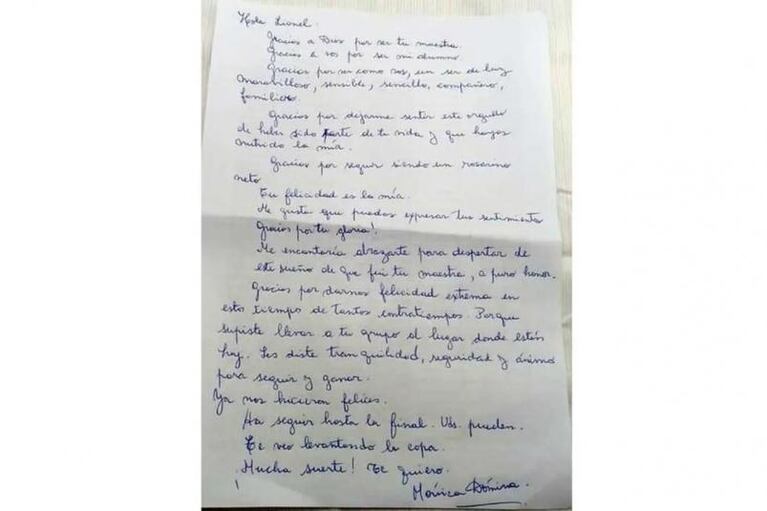 Hola Lionel.
Gracias a Dios por ser tu maestra.
Gracias a vos por ser mi alumno
Gracias por ser como sos, un ser de luz
maravilloso, sensible, sencillo, compañero,
familiero.
Gracias por dejarme sentir este orgullo
de haber sido parte de tu vida y que hayas
nutrido la mía.
Gracias por seguir siendo un rosarino
neto
Tu felicidad es la mía.
Me gusta que puedas expresar tus sentimientos
Gracias por tu gloria!
Me encantaría abrazarte para despertar de
este sueño de que fui tu maestra, a puro honor.
Gracias por darnos felicidad extrema en
este tiempo de tantos contratiempos. Porque
supiste llevar a tu grupo al lugar donde están
hoy. Les diste tranquilidad, seguridad y ánimo
para seguir y ganar.
Ya nos hicieron felices.
Ha seguir hasta la final. Uds. pueden.
Te veo levantando la copa.
Mucha suerte! Te quiero.
Mónica Dómina